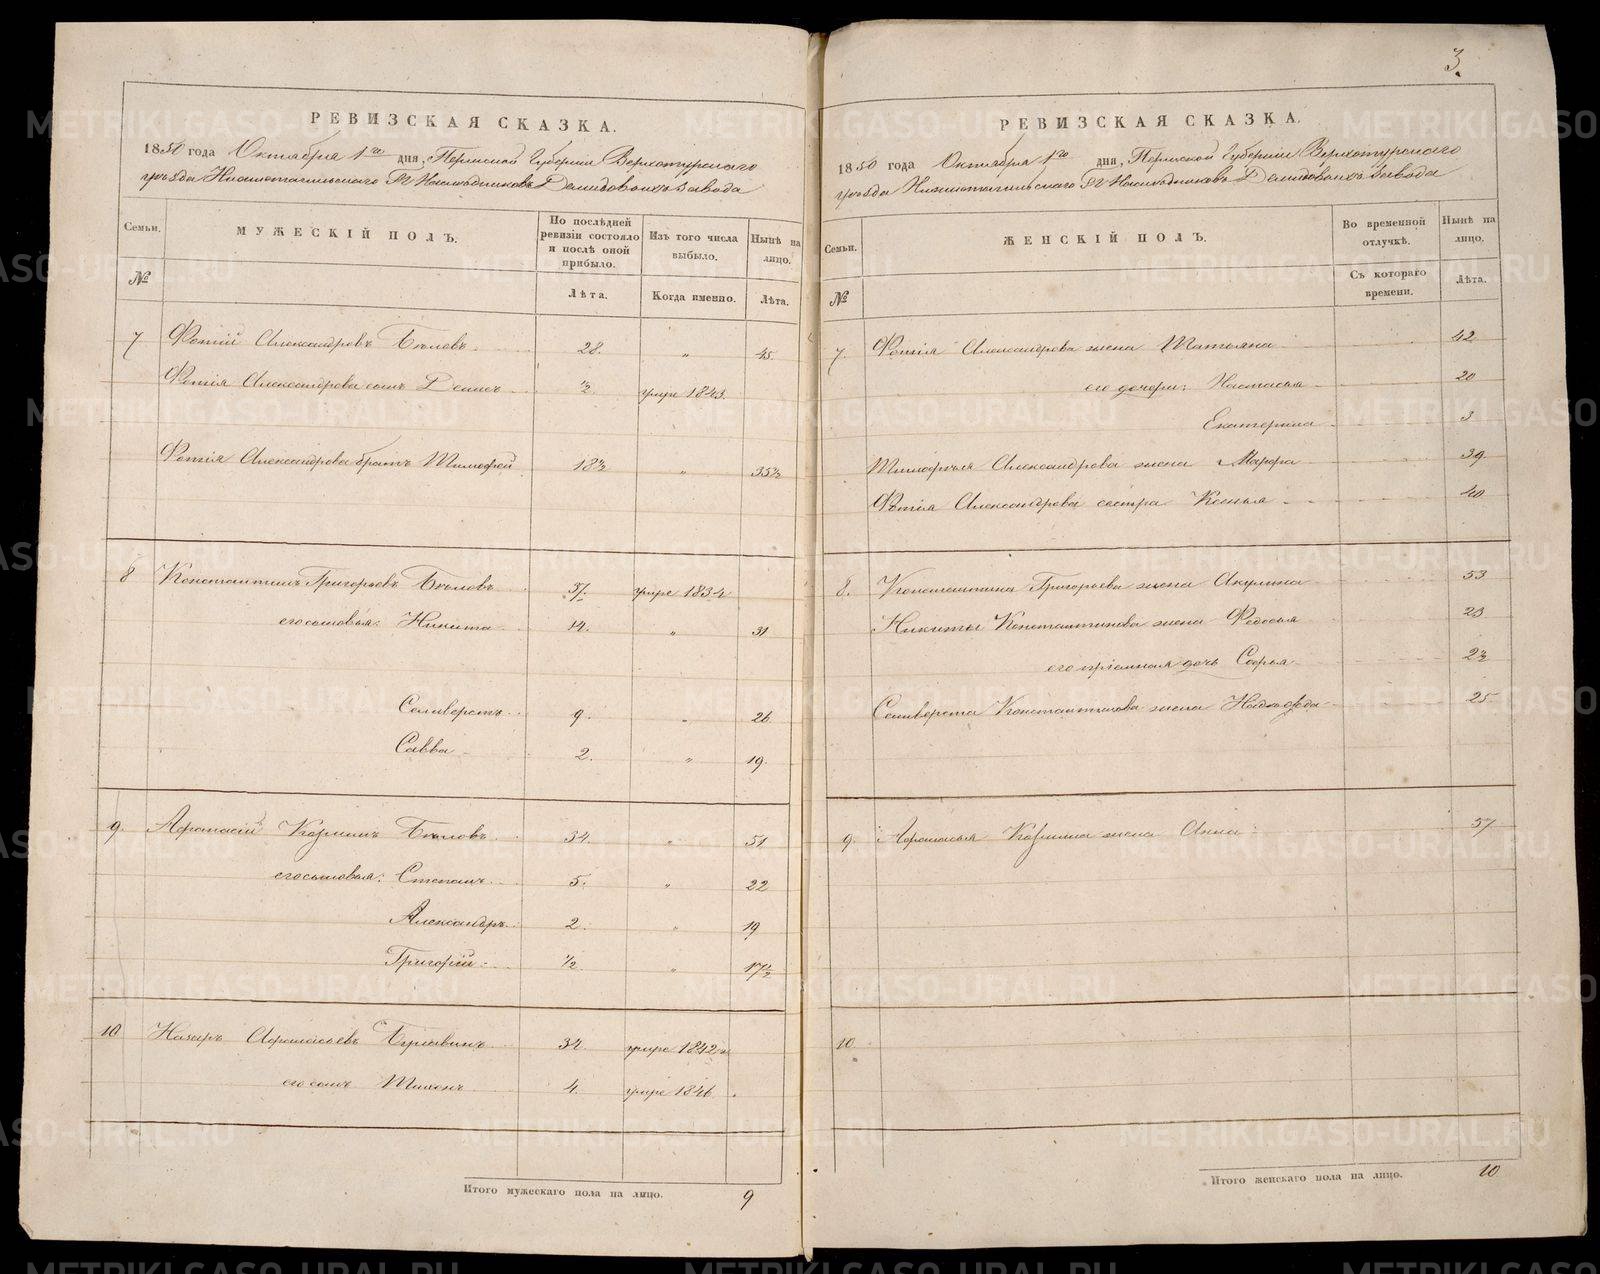 3.
РЕВИЗСКАЯ СКАЗКА.
1850 года Октября 1го дня, Пермской Губернии Верхотурского
уезда Нижнетагильского Гг Наследниковъ Демидовыхъ завода
Семьи.
№
МУЖЕСКІЙ ПОЛЪ.
По послѣдней ревизіи состояло и послѣ оной прибыло.
Лѣта.
Изъ того числа выбыло.
Когда именно.
Нынѣ на лицо.
Лѣта.
7 Фотій Александровъ Бѣловъ 28. " 45
Фотія Александрова сынъ Денисъ ½. умре 1843.
Фотія Александрова братъ Тимофей 18½ " 35½
8 Константинъ Григорьевъ Бѣловъ 37. умре 1834
его сыновья: Никита 14. " 31
Селиверстъ 9. " 26
Савва 2. " 19.
9. Афонасій Бѣловъ 34. " 51
его сыновья: Степанъ 5. " 22
Александръ 2. " 19
Григорій ½. " 17½
10 Назаръ Афонасьевъ 34. умре 1842
его сынъ Тихонъ 4. умре 1846.
Итого мужескаго пола на лицо. 9
РЕВИЗСКАЯ СКАЗКА.
1850 года Октября 1го дня, Пермской Губерніи Верхотурского
уезда Нижнетагильского Гг Наследниковъ Демидовыхъ завода
Семьи.
№
ЖЕНСКІЙ ПОЛЪ.
Во временной отлучкѣ.
Съ котораго времени.
Нынѣ на лицо.
Лѣта.
7. Фотія Александрова жена Татьяна 42
его дочери: Настасья 20
Екатерина 3
Тимофея Александрова жена Марфа 39.
Фотія Александрова сестра Ксенья 40
8. Константина Григорьева жена Акулина 53
Никиты Константинова жена Федосья 23
его пріемная дочь Софья 2½
Селиверста Константинова жена Надежда 25
9. Афонасья жена Анна 57
10
Итого женскаго пола на лицо. 10
METRIKI.GASO-URAL.RU